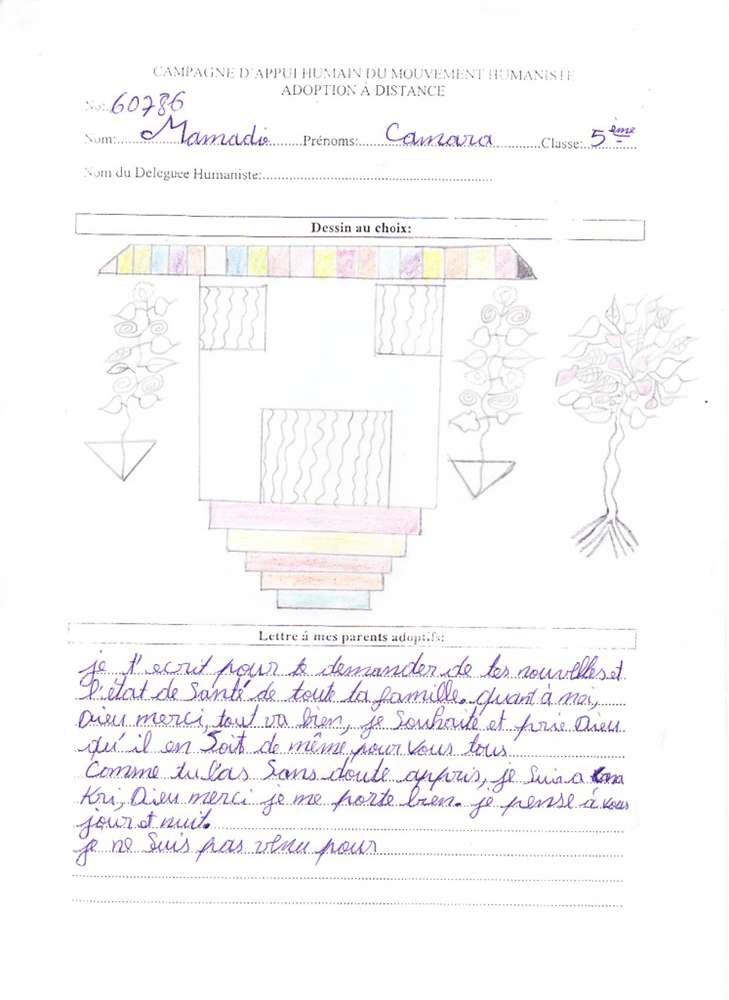 CAMPAGNE D'APPUI HUMAIN DU MOUVEMENT HUMANISTE
ADOPTION À DISTANCE
No: 60786
Nom: Mamadie Prénoms: Camara Classe: 5ème
Nom du Deleguee Humaniste:
Dessin au choix:
Lettre à mes parents adoptifs:
je t'ecrit pour te demander de tes nouvelles et
l'état de Santé de toute ta famille. quant à moi,
Dieu merci, tout va bien, je Souhaite et prie Dieu
qu'il en Soit de même pour Vous tous
Comme tu l'as Sans doute appris, je Suis a
Kri, Dieu merci je me porte bien. je pense à vous
jour et nuit.
je ne Suis pas venu pour